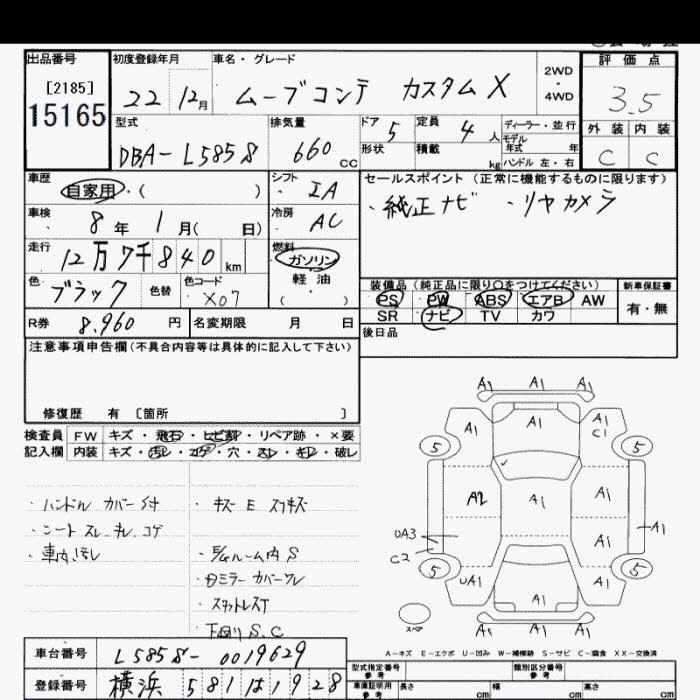 出品番号
[2185]
15165
初度登録年月
22 12月
車名・グレード
ムーブコンテ カスタムX
2WD
4WD
評価点
3.5
外装 内装
C C
型式
DBA-L585S
排気量
660 cc
ドア 5
定員 4 人
形状
積載 kg
ディーラー・並行
モデル
年式 年
ハンドル 左・右
車歴
自家用・( )
シフト
IA
セールスポイント(正常に機能するものに限ります)
・純正ナビ ・リヤカメラ
車検
8年 1月( 日)
冷房
AC
走行
12万7千840 km
燃料
ガソリン
軽油
( )
色
ブラック
色替
色コード
X07
装備品(純正品に限り○をつけてください)
PS PW ABS エアB AW
SR ナビ TV カワ
新車保証書
有・無
R券 8,960 円
名変期限 月 日
後日品
注意事項申告欄(不具合内容等は具体的に記入して下さい)
修復歴 有 〔箇所 〕
検査員
記入欄
FW キズ・飛石・ヒビ割・リペア跡・×要
内装 キズ・汚レ・コゲ・穴・スレ・キレ・破レ
・ハンドルカバー付
・シートスレ.キレ.コゲ
・車内汚レ
・キズ E スリキズ
ルーム内 S
ミラーカバーワレ
・スタットレスT
下回り S.C
A1 A1 A1
A1 A1 A1
C1
5 5
A2 A1 A1
UA3 A1
C2 A1
5 5
UA1 A1 A1
スペア
A1 A1 A1
A-キズ E-エクボ U-凹み W-補修跡 S-サビ C-腐食 XX-交換済
車台番号 L585S-0019629
登録番号 横浜 581 は1928
型式指定番号
参考
類別区分番号
参考
車庫証明用
参考
長さ cm 幅 cm 高さ cm